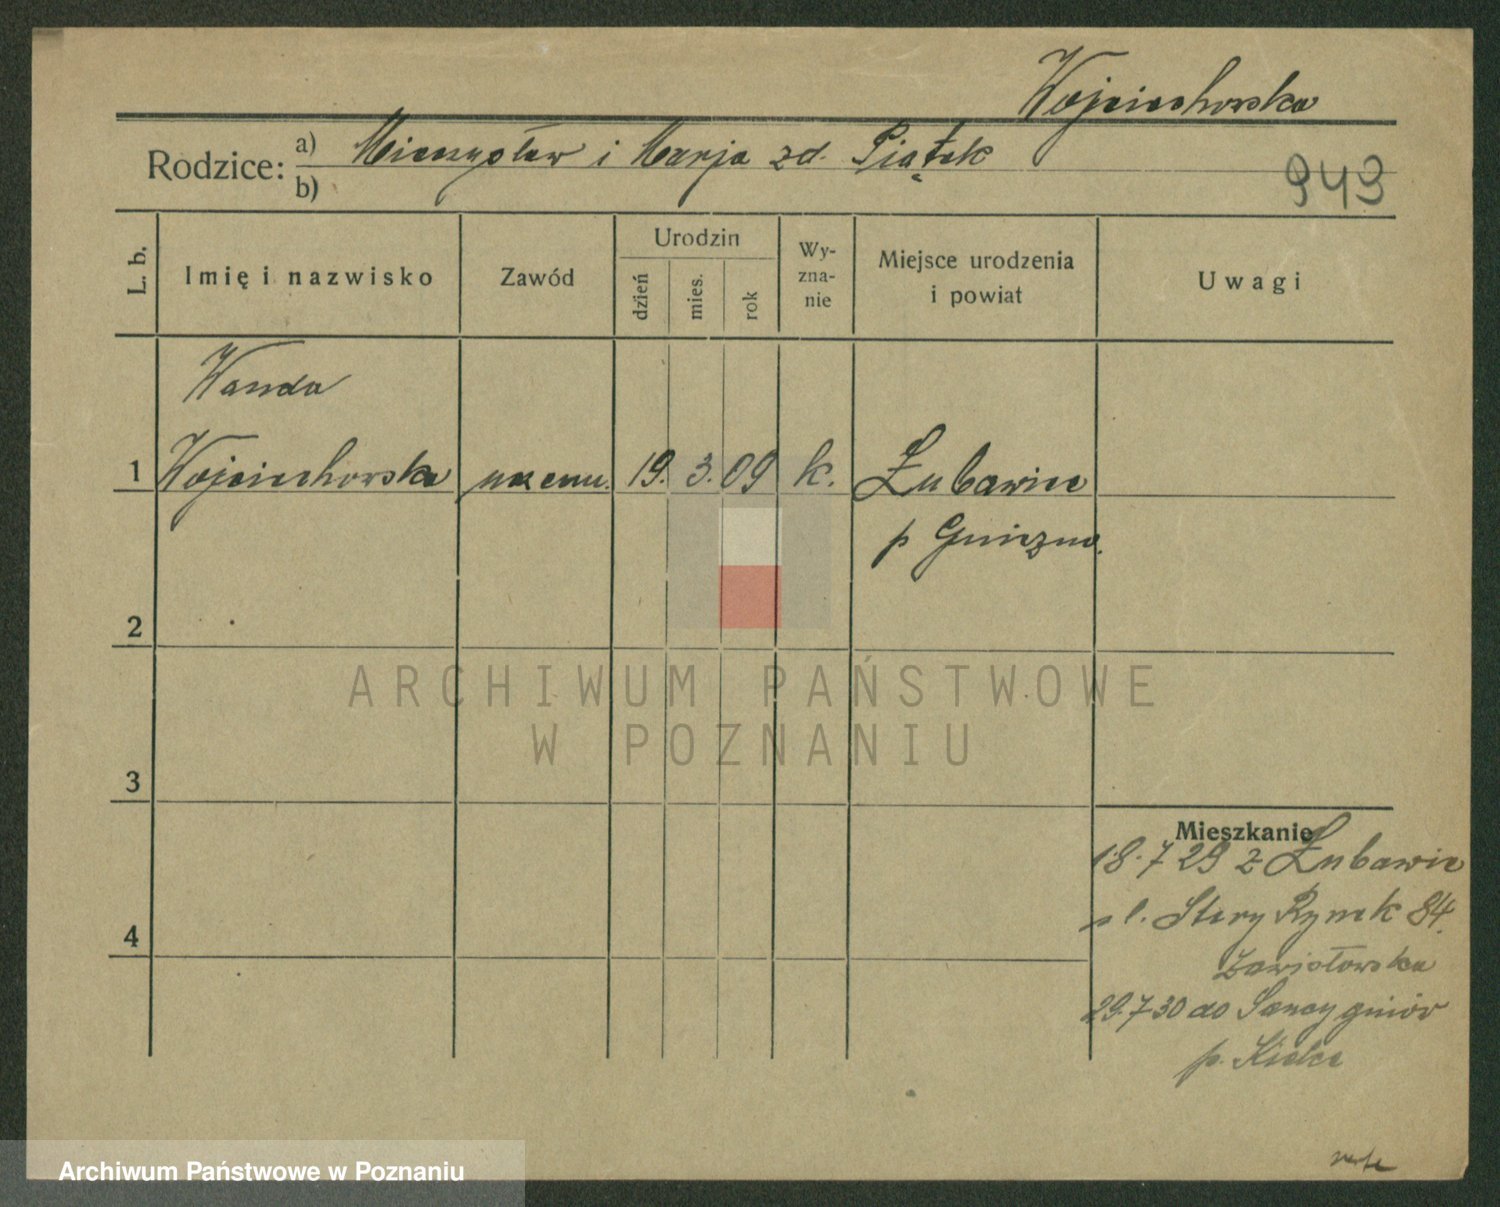 Wojciechowska
Rodzice: a) Mieczysław i Marja zd. Piątek
b)
943
L. b.
Imię i nazwisko
Zawód
Urodzin
dzień
mies.
rok
Wy-
zna-
nie
Miejsce urodzenia
i powiat
Uwagi
Wanda
1 Wojciechowska uczenn. 19. 3. 09 k. Łubowice
p Gniezno.
2
ARCHIWUM PAŃSTWOWE
W POZNANIU
3
Mieszkanie
18.7 29 z Łubowic
ul. Stary Rynek 84.
Zawistowska
29.7 30 do Sancygniów
p. Kielce
4
Archiwum Państwowe w Poznaniu